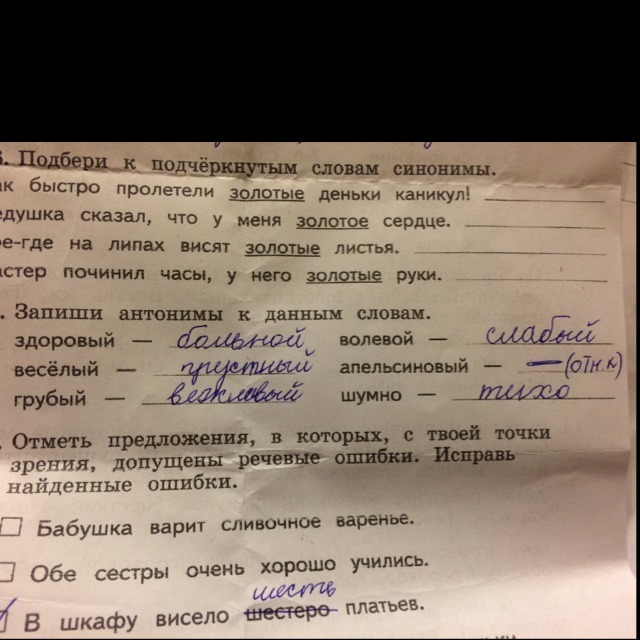 6. Подбери к подчёркнутым словам синонимы.
ак быстро пролетели золотые деньки каникул!
едушка сказал, что у меня золотое сердце.
е-где на липах висят золотые листья.
астер починил часы, у него золотые руки.
. Запиши антонимы к данным словам.
здоровый — больной волевой — слабый
весёлый — грустный апельсиновый — — (отн.к)
грубый — вежливый шумно — тихо
. Отметь предложения, в которых, с твоей точки
зрения, допущены речевые ошибки. Исправь
найденные ошибки.
Бабушка варит сливочное варенье.
Обе сестры очень хорошо учились.
шесть
В шкафу висело шестеро платьев.